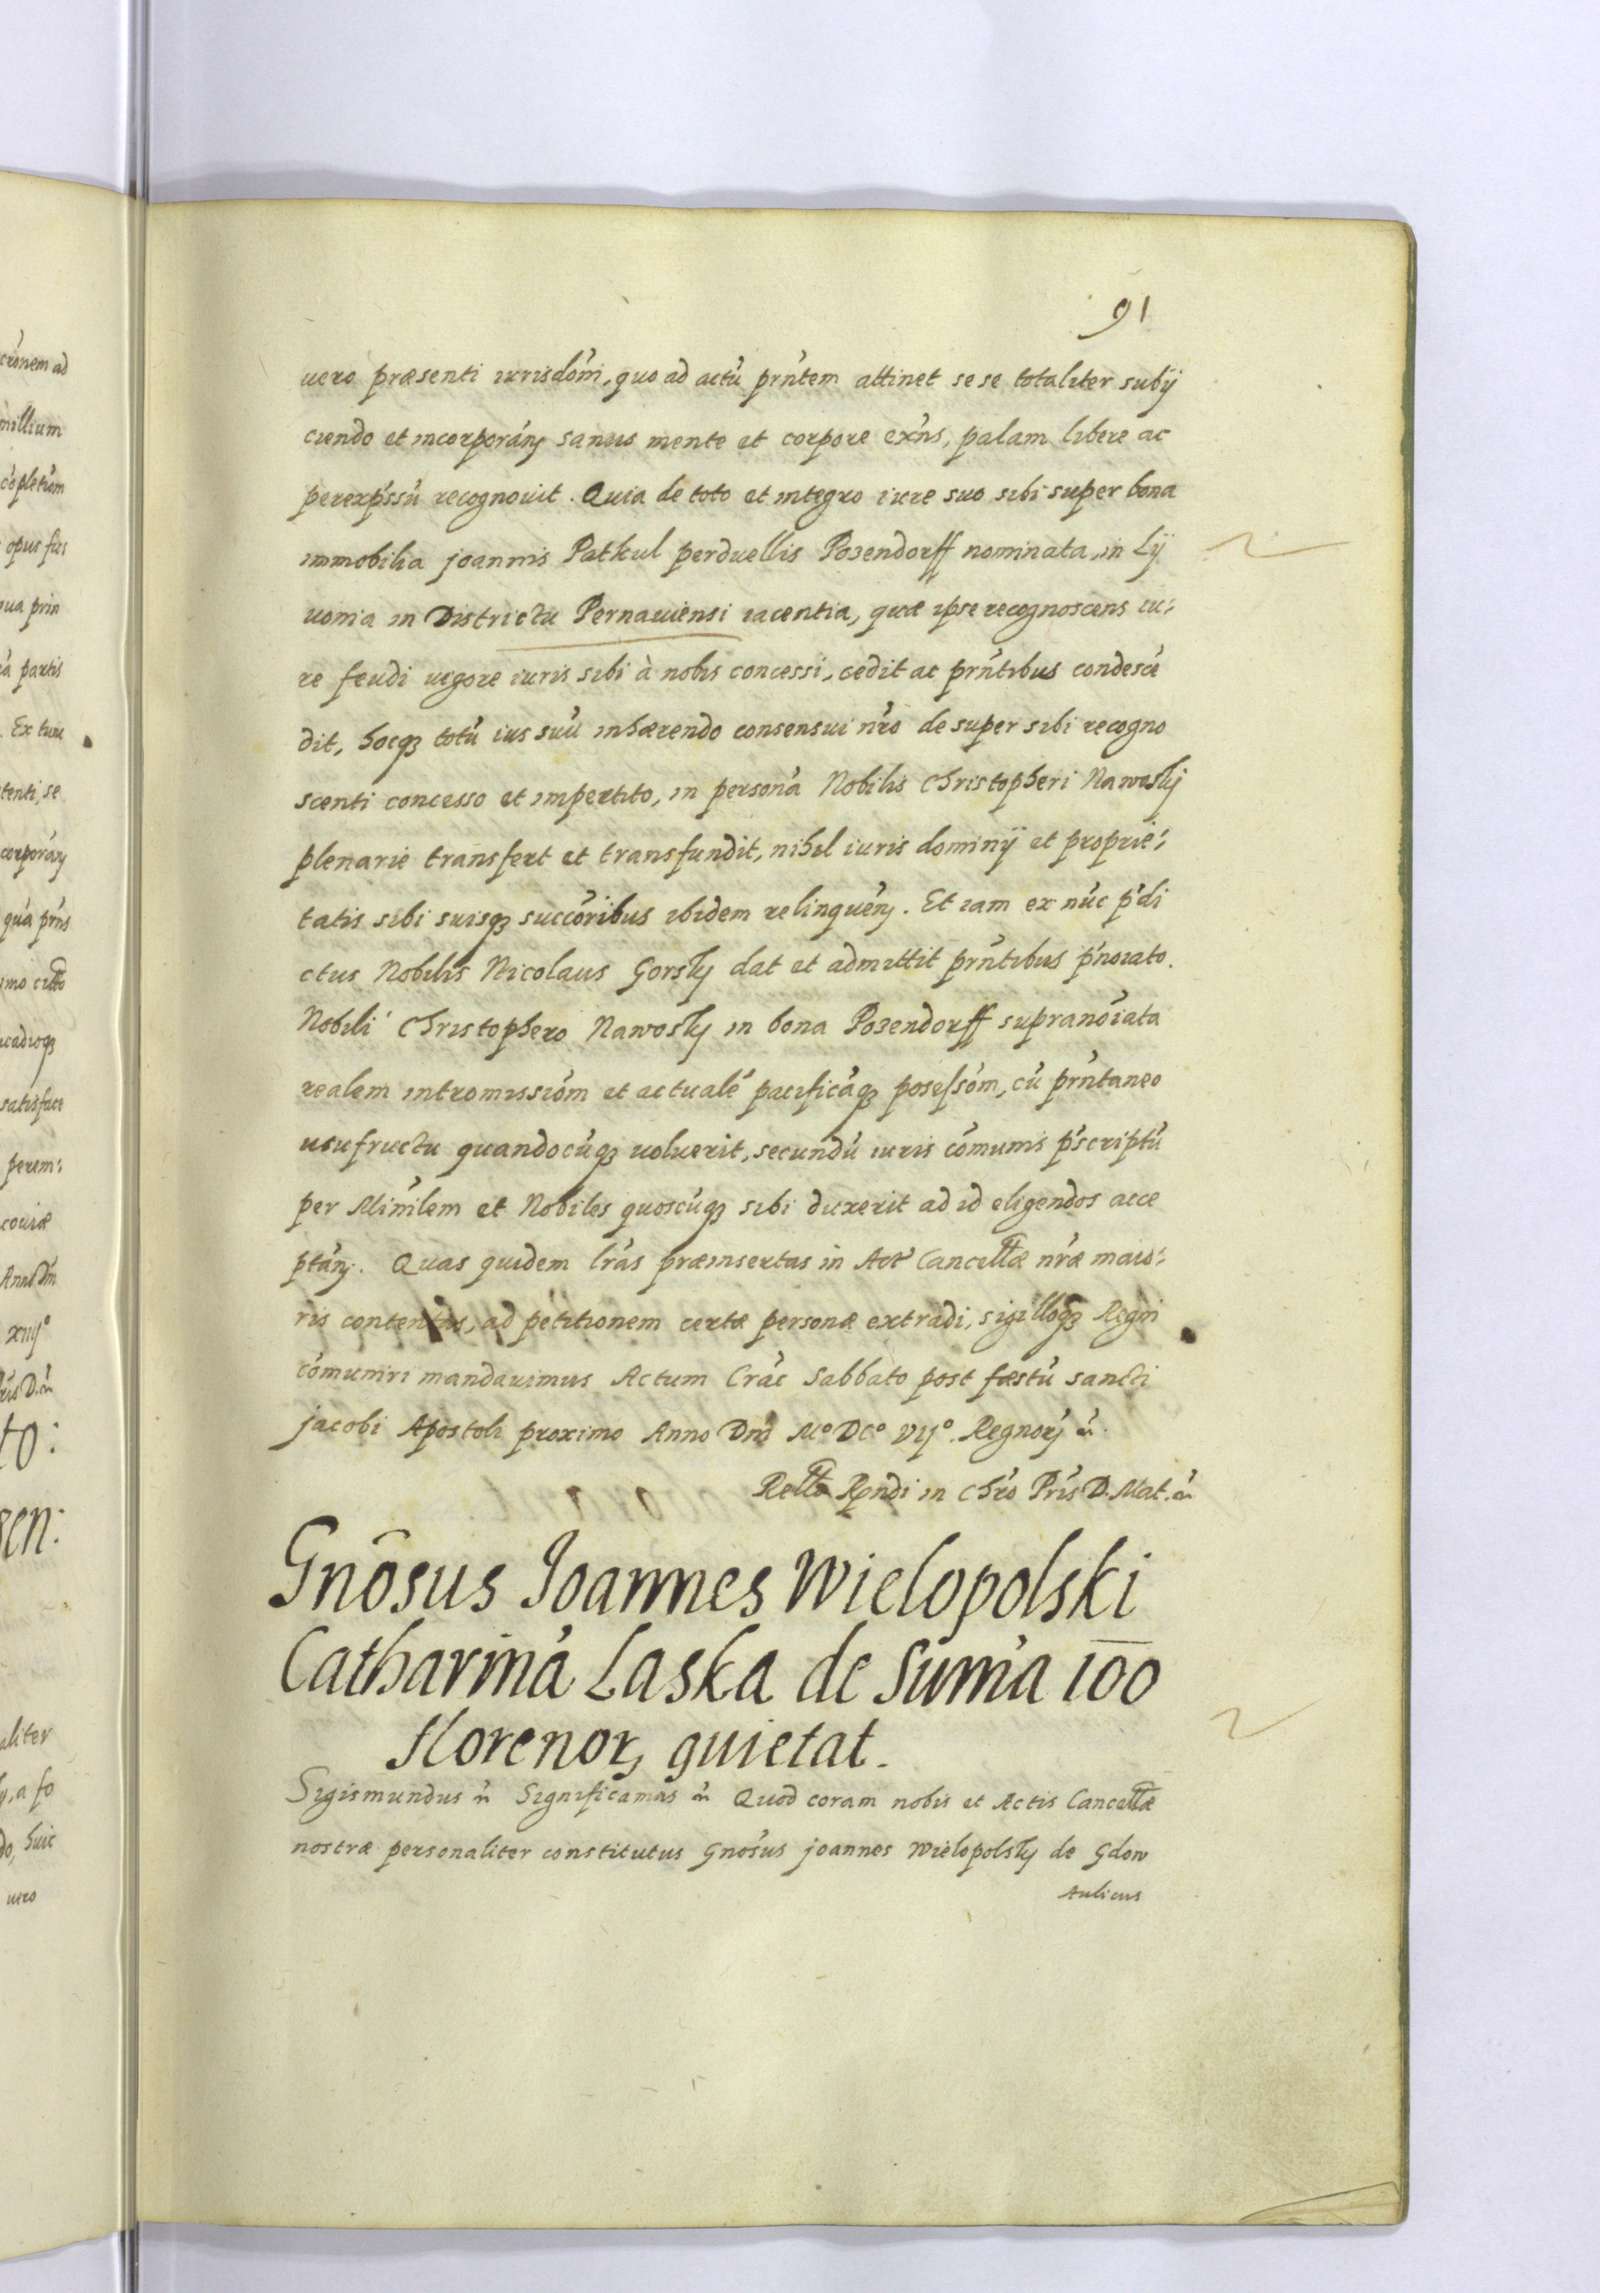 91
uero præsenti iurisdōni, quo ad actū prñtem attinet se se totaliter subÿ
ciendo et incorporāń sanus mente et corpore exñs, palam libere ac
perexp̃ssū recognouit. Quia de toto et integro iure suo sibi super bona
immobilia joannis Patkul perduellis Pozendorff nominata, in Lÿ
uonia in Districtu Pernauiensi iacentia, quæ ipse recognoscens iu:
re feudi uigore iuris sibi à nobis concessi, cedit ac prñtibus condescē
dit, hocq3 totū ius suū inhærendo consensui nřo de super sibi recogno
scenti concesso et impertito, in personā Nobilis Christopheri Nawosky
plenarie transfert et transfundit, nihil iuris dominÿ et proprie:
tatis sibi suisq3 succōribus ibidem relinquēń. Et iam ex nūc p̃di
ctus Nobilis Nicolaus Gorsky dat et admittit prñtibus p̃noiato.
Nobili Christophero Nawosky in bona Pozendorff supranoīata
realem intromissiōm et actualē pacificāq3 posessōm, cū prñtaneo
usufructu quandocūq3 uoluerit, secundū iuris cōmunis p̃scriptū
per Minīlem et Nobiles quoscūq3 sibi duxerit ad id eligendos acce
ptāń. Quas quidem lrās præinsertas in Act̃ Cancellæ nr̃æ maio:
ris contentas, ad petitionem certæ personæ extradi, sigilloq3 Regni
cōmuniri mandauimus Actum Crac̃ Sabbato post fæstū sancti
jacobi Apostoli proximo Anno Dnī Mº DCº VIJº. Regnorȝ ꝛc̃.
Rellō Rn̄di in Chřo Přis D. Mat. ꝛc̃
Gnōsus Joannes Wielopolski
Catharinā Laska de Sum̄a 100
florenorȝ quietat.
Sigismundus ꝛc̃ Significamus ꝛc̃ Quod coram nobis et Actis Cancellæ
nostræ personaliter constitutus Gnōsus joannes Wielopolsky de Gdow
Aulicus